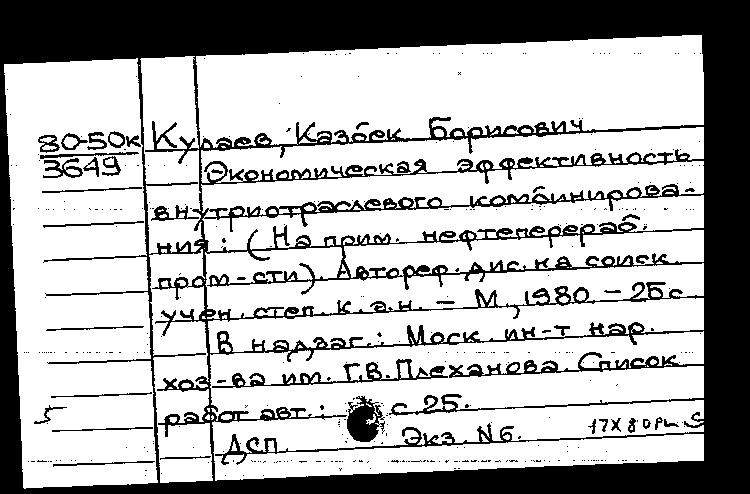 80-50к Кулаев, Казбек Борисович.
3649 Экономическая эффективность
внутриотраслевого комбинирова-
ния: (На прим. нефтеперераб.
пром-сти). Автореф. дис. на соиск.
учен. степ. к. э. н. - М., 1980. - 25 с
В надзаг.: Моск. ин-т нар.
хоз-ва им. Г.В. Плеханова. Список
5 работ авт.: с 25.
ДСП. Экз. N6.
17X80